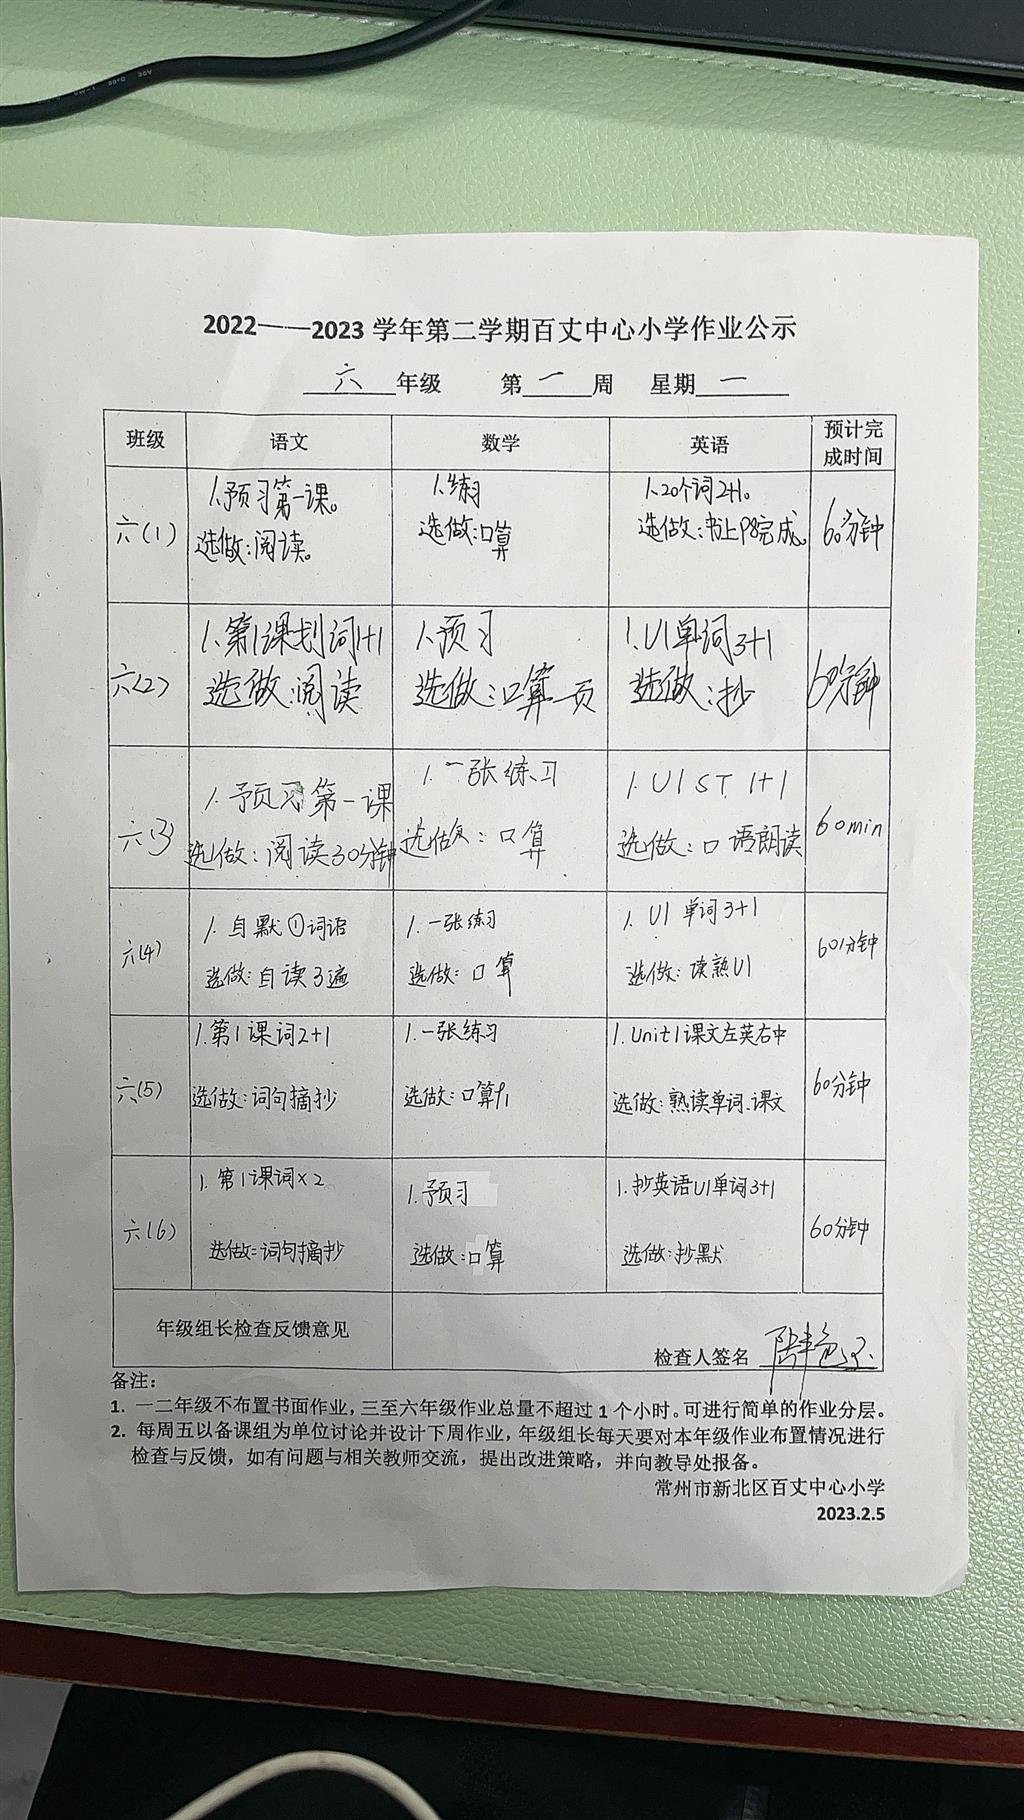 2022——2023 学年第二学期百丈中心小学作业公示
六 年级 第 一 周 星期 一
班级 语文 数学 英语 预计完成时间
六(1)
1.预习第一课。
选做:阅读。
1.练习
选做:口算
1.20个词2+1。
选做:书上P8完成。
60分钟
六(2)
1.第1课划词1+1
选做:阅读
1.预习
选做:口算一页
1.U1单词3+1
选做:抄
60分钟
六(3)
1.预习第一课
选做:阅读30分钟
1.一张练习
选做:口算
1.U1 ST 1+1
选做:口语朗读
60min
六(4)
1.自默①词语
选做:自读3遍
1.一张练习
选做:口算
1.U1单词3+1
选做:读熟U1
60分钟
六(5)
1.第1课词2+1
选做:词句摘抄
1.一张练习
选做:口算P1
1.Unit1课文左英右中
选做:熟读单词、课文
60分钟
六(6)
1.第1课词×2
选做:词句摘抄
1.预习
选做:口算
1.抄英语U1单词3+1
选做:抄默
60分钟
年级组长检查反馈意见
检查人签名
备注:
1. 一二年级不布置书面作业,三至六年级作业总量不超过 1 个小时。可进行简单的作业分层。
2. 每周五以备课组为单位讨论并设计下周作业,年级组长每天要对本年级作业布置情况进行
检查与反馈,如有问题与相关教师交流,提出改进策略,并向教导处报备。
常州市新北区百丈中心小学
2023.2.5